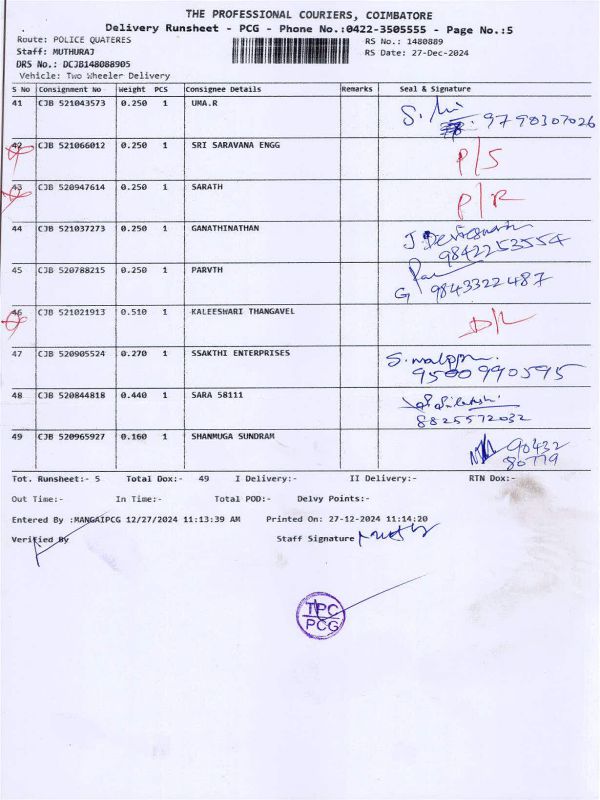 THE PROFESSIONAL COURIERS, COIMBATORE
Delivery Runsheet - PCG - Phone No.:0422-3505555 - Page No.:5
Route: POLICE QUATERES RS No.: 1480889
Staff: MUTHURAJ RS Date: 27-Dec-2024
DRS No.: DCJB148088905
Vehicle: Two Wheeler Delivery
S No Consignment No Weight PCS Consignee Details Remarks Seal & Signature
41 CJB 521043573 0.250 1 UMA.R 9790307026
42 CJB 521066012 0.250 1 SRI SARAVANA ENGG P/S
43 CJB 520947614 0.250 1 SARATH P/R
44 CJB 521037273 0.250 1 GANATHINATHAN 9842253554
45 CJB 520788215 0.250 1 PARVTH G 9843322487
46 CJB 521021913 0.510 1 KALEESWARI THANGAVEL D/L
47 CJB 520905524 0.270 1 SSAKTHI ENTERPRISES 9500990595
48 CJB 520844818 0.440 1 SARA 58111 8825572032
49 CJB 520965927 0.160 1 SHANMUGA SUNDRAM 90432
80779
Tot. Runsheet:- 5 Total Dox:- 49 I Delivery:- II Delivery:- RTN Dox:-
Out Time:- In Time:- Total POD:- Delvy Points:-
Entered By :MANGAIPCG 12/27/2024 11:13:39 AM Printed On: 27-12-2024 11:14:20
Verified By Staff Signature
TPC
PCG